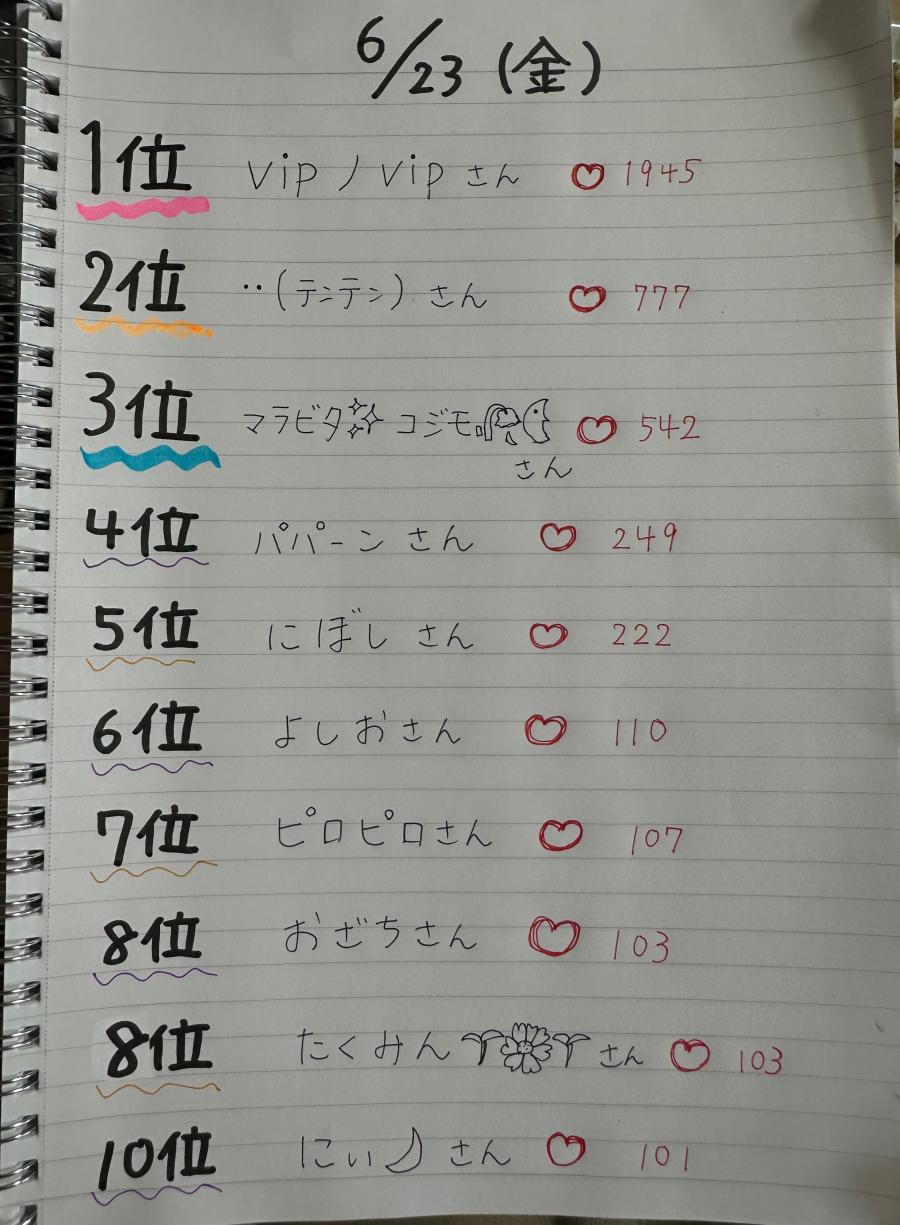 6/23 (金)
1位 vip ノ vip さん ♡ 1945
2位 ‥(テンテン) さん ♡ 777
3位 マラビタ✨ コジモ ♡ 542
さん
4位 パパーン さん ♡ 249
5位 にぼし さん ♡ 222
6位 よしおさん ♡ 110
7位 ピロピロさん ♡ 107
8位 おざちさん ♡ 103
8位 たくみん🌱🌼🌱 さん ♡ 103
10位 にぃ🌙 さん ♡ 101